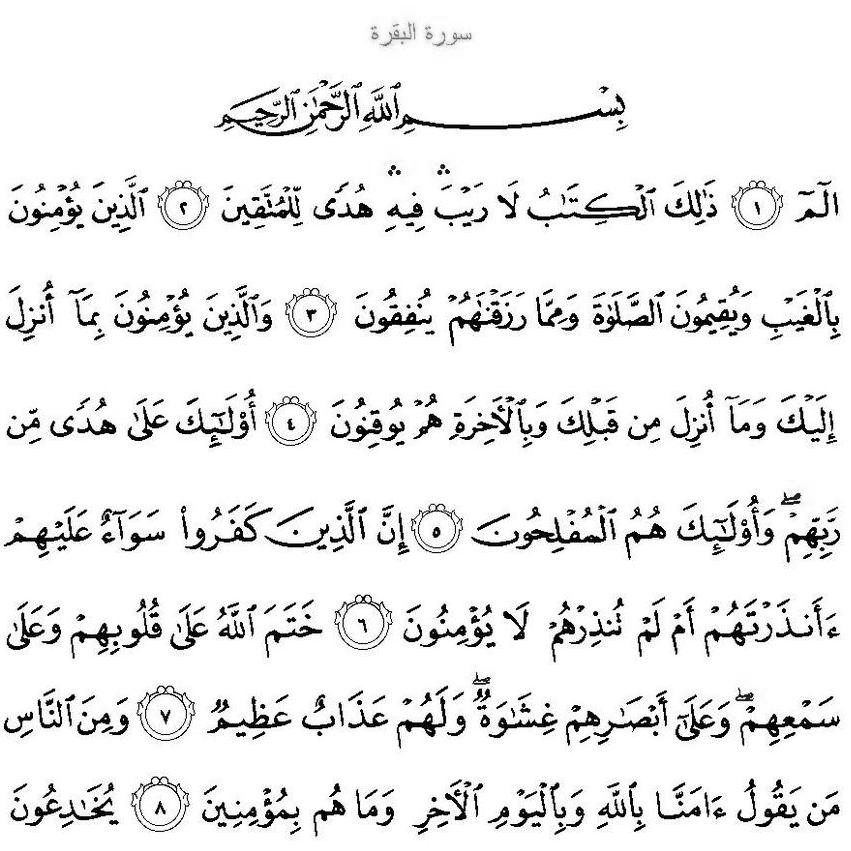 سورة البقرة
بِسْمِ ٱللَّهِ ٱلرَّحْمَٰنِ ٱلرَّحِيمِ
الٓمٓ ١ ذَٰلِكَ ٱلْكِتَٰبُ لَا رَيْبَۛ فِيهِۛ هُدًى لِّلْمُتَّقِينَ ٢ ٱلَّذِينَ يُؤْمِنُونَ
بِٱلْغَيْبِ وَيُقِيمُونَ ٱلصَّلَوٰةَ وَمِمَّا رَزَقْنَٰهُمْ يُنفِقُونَ ٣ وَٱلَّذِينَ يُؤْمِنُونَ بِمَآ أُنزِلَ
إِلَيْكَ وَمَآ أُنزِلَ مِن قَبْلِكَ وَبِٱلْءَاخِرَةِ هُمْ يُوقِنُونَ ٤ أُو۟لَٰٓئِكَ عَلَىٰ هُدًى مِّن
رَّبِّهِمْۖ وَأُو۟لَٰٓئِكَ هُمُ ٱلْمُفْلِحُونَ ٥ إِنَّ ٱلَّذِينَ كَفَرُوا۟ سَوَآءٌ عَلَيْهِمْ
ءَأَنذَرْتَهُمْ أَمْ لَمْ تُنذِرْهُمْ لَا يُؤْمِنُونَ ٦ خَتَمَ ٱللَّهُ عَلَىٰ قُلُوبِهِمْ وَعَلَىٰ
سَمْعِهِمْۖ وَعَلَىٰٓ أَبْصَٰرِهِمْ غِشَٰوَةٌۖ وَلَهُمْ عَذَابٌ عَظِيمٌ ٧ وَمِنَ ٱلنَّاسِ
مَن يَقُولُ ءَامَنَّا بِٱللَّهِ وَبِٱلْيَوْمِ ٱلْءَاخِرِ وَمَا هُم بِمُؤْمِنِينَ ٨ يُخَٰدِعُونَ